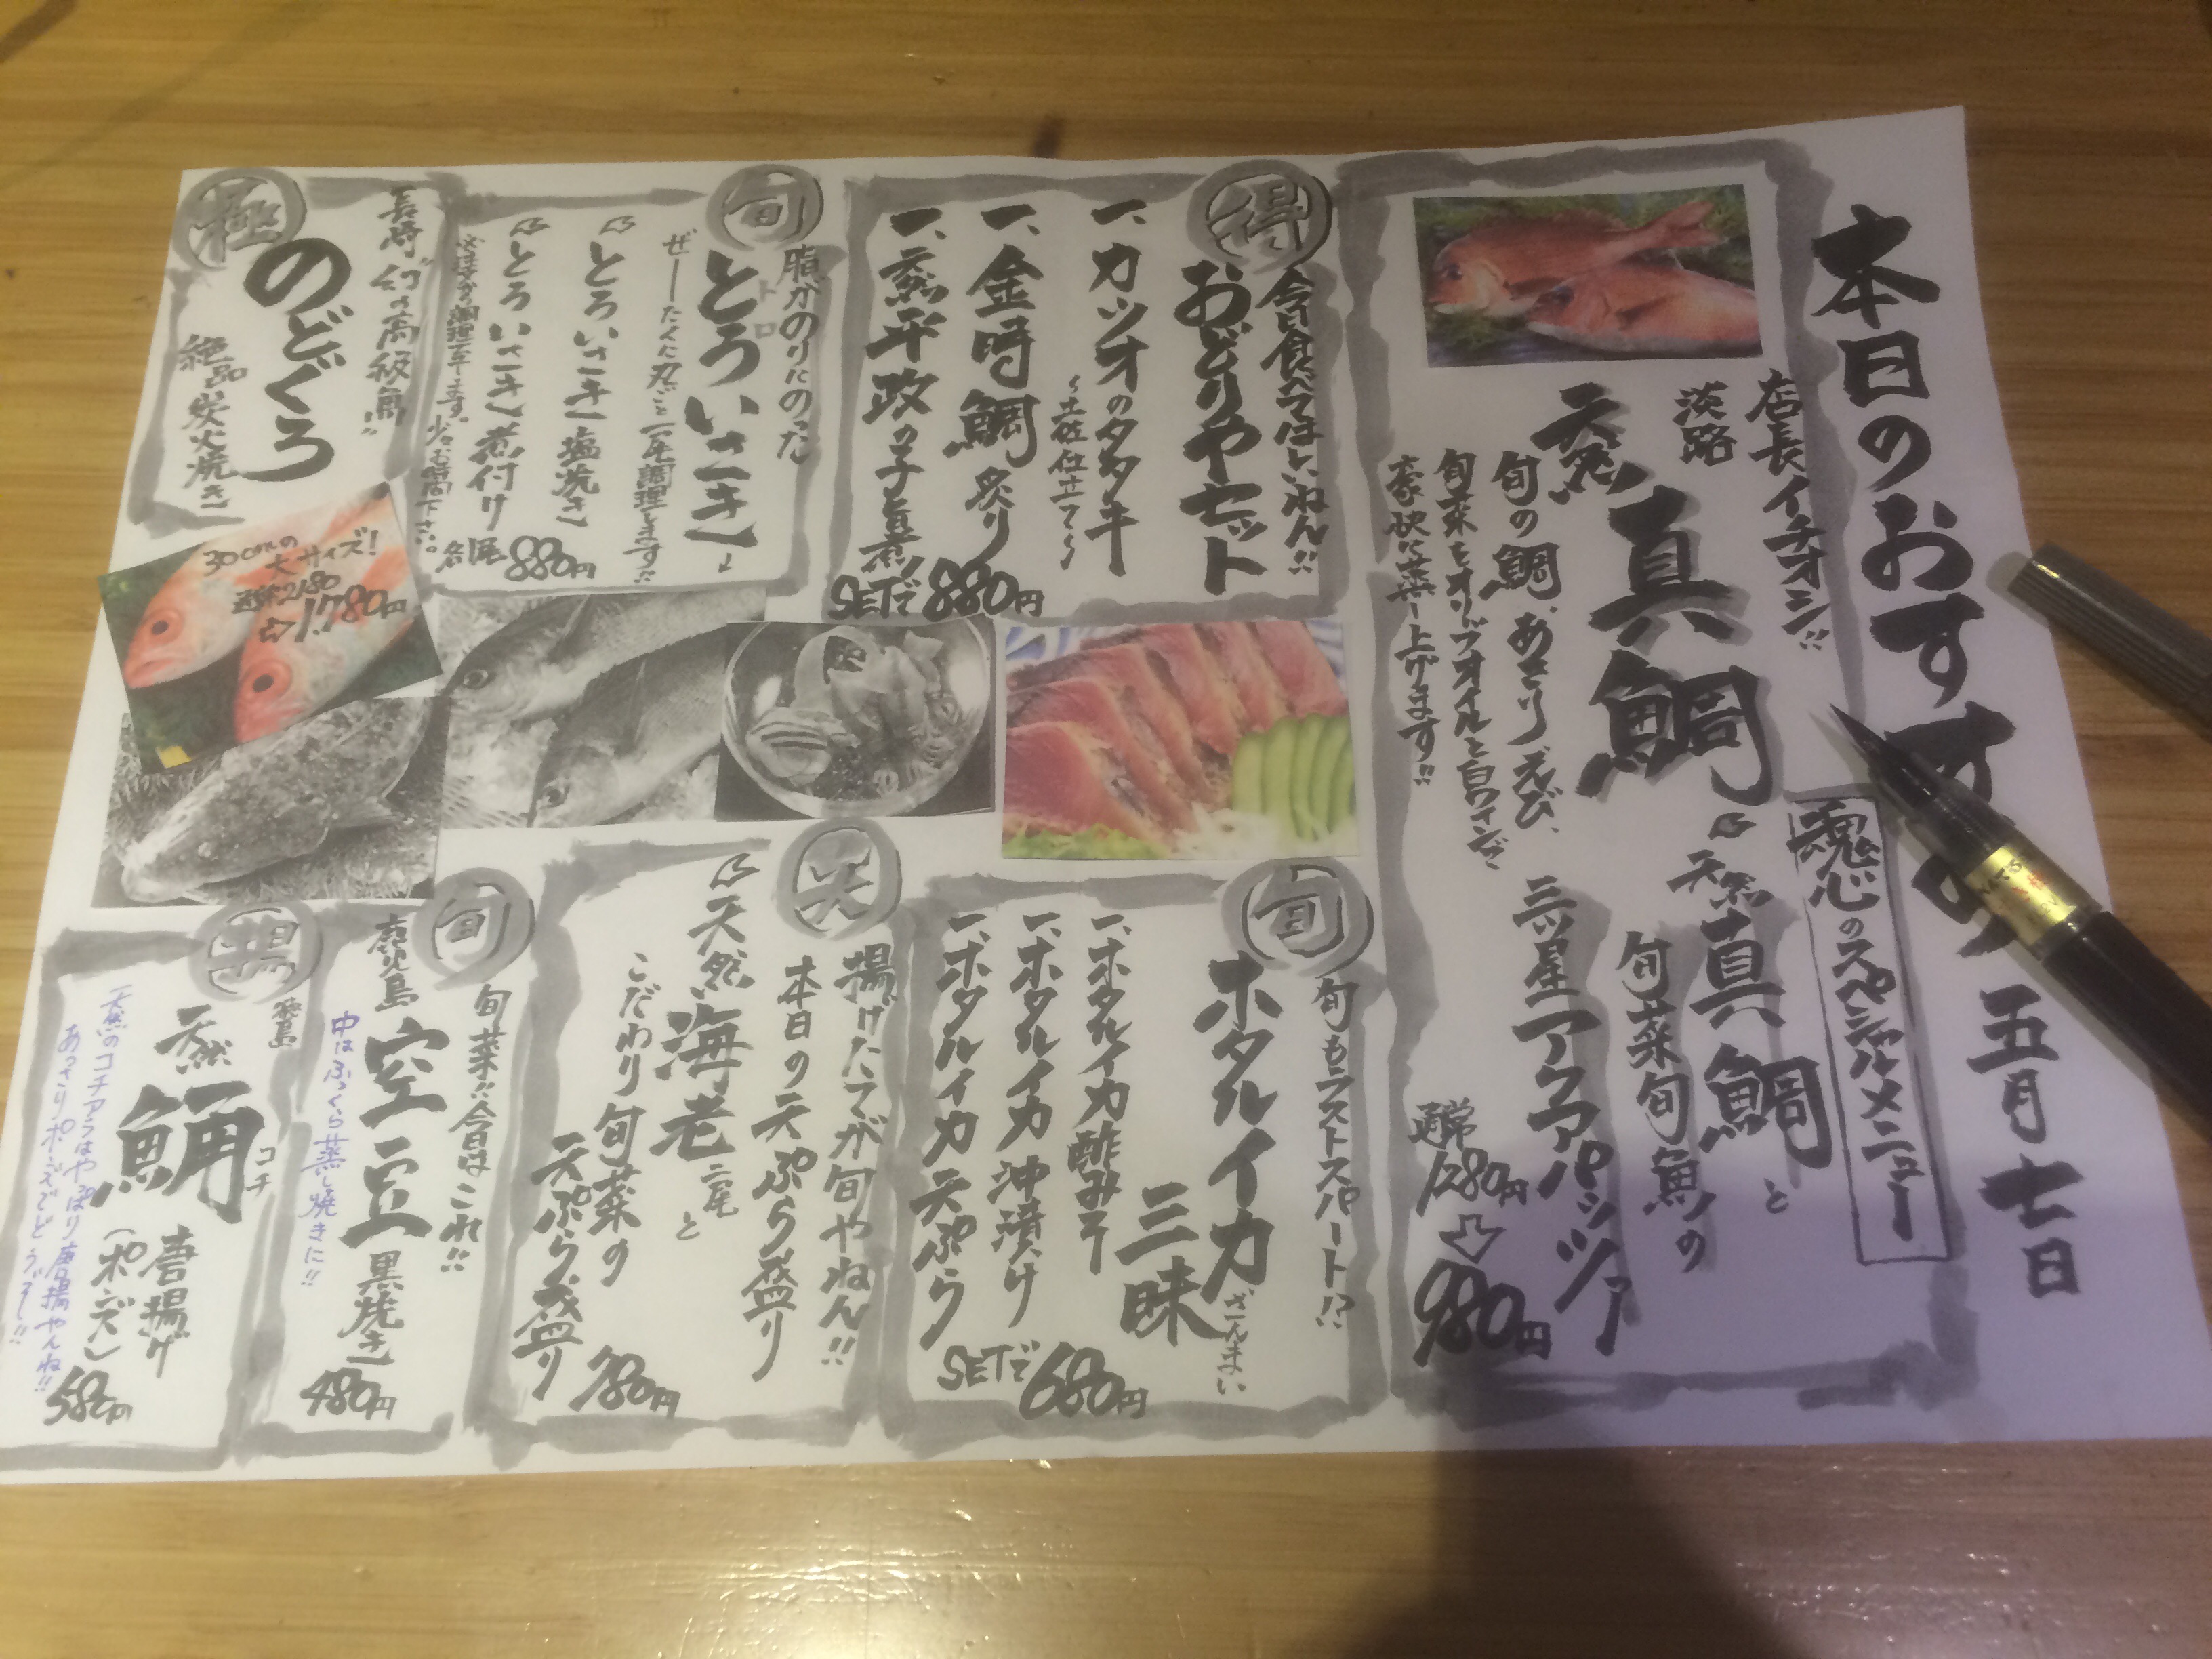 本日のおすすめ 五月七日
店長イチオシ!!
淡路
天然 真鯛
旬の鯛、あさり、えび、
旬菜をオリーブオイルと白ワインで
豪快に蒸し上げます!!
魂心のスペシャルメニュー
天然真鯛と
旬菜旬魚の
三ツ星アクアパッツァ
通常1280円
980円
得
今日食べてほしいねん!!
おどりやセット
一、カツオのタタキ
〜土佐仕立て〜
一、金時鯛炙り
一、天然平政の子旨煮
SETで880円
旬
脂がのりにのった
とろいさき
トロ
ぜーたくに丸ごと一尾調理します!!
とろいさき塩焼き
とろいさき煮付け
少々お時間下さい。
各一尾880円
極
長崎 幻の高級魚"
のどぐろ
絶品炭火焼き
30cmの
大サイズ!
通常2180
1,780円
旬
旬もラストスパート!?
ホタルイカ
三昧
ざんまい
一、ホタルイカ酢みそ
一、ホタルイカ沖漬け
一、ホタルイカ天ぷら
SETで680円
天
揚げたてが旬やねん!!
本日の天ぷら盛り
天然海老二尾と
こだわり旬菜の
天ぷら盛り
780円
旬
旬菜!!今日はこれ!!
鹿児島 空豆 黒焼き
中はふっくら蒸し焼きに!!
480円
揚
天然 鯒 唐揚げ
コチ
(ポン酢)
天然のコチアラはやっぱり唐揚やんね!!
あっさりポン酢でどうぞー!!
580円